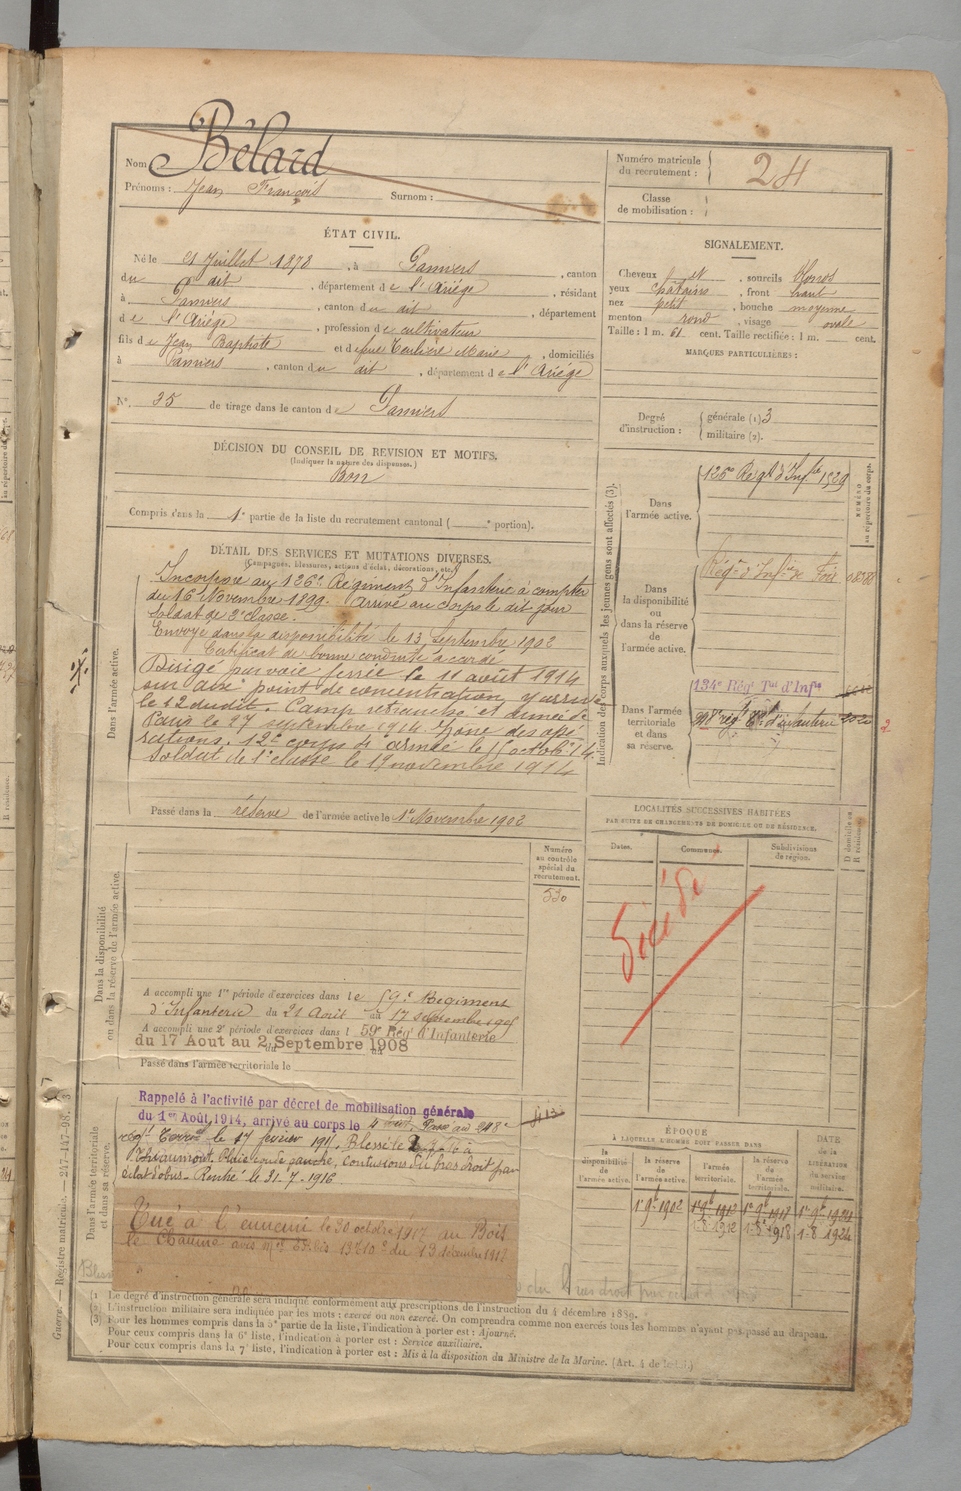 Nom Bélard
Prénoms : Jean François Surnom :
Numéro matricule
du recrutement : 24
Classe
de mobilisation :
ÉTAT CIVIL.
Né le 21 Juillet 1878, à Pamiers, canton
du dit, département de l'Ariége, résidant
à Pamiers, canton du dit, département
de l'Ariége, profession de cultivateur
fils de Jean Baptiste et de feue Marie, domiciliés
à Pamiers, canton du dit, département de l'Ariége
N° 25 de tirage dans le canton de Pamiers
SIGNALEMENT.
Cheveux et, sourcils
yeux chatains, front haut
nez petit, bouche moyenne
menton rond, visage ovale
Taille : 1 m. 61 cent. Taille rectifiée : 1 m. cent.
MARQUES PARTICULIÈRES :
Degré
d'instruction :
générale (1) 3
militaire (2).
DÉCISION DU CONSEIL DE REVISION ET MOTIFS.
(Indiquer la nature des dispenses.)
Bon
Compris dans la 1e partie de la liste du recrutement cantonal ( e portion).
DÉTAIL DES SERVICES ET MUTATIONS DIVERSES.
(Campagnes, blessures, actions d'éclat, décorations, etc.)
Dans l'armée active.
Incorporé au 126e Régiment d'Infanterie à compter
du 16 Novembre 1899. Arrivé au corps le dit jour
soldat de 2e classe.
Envoyé dans la disponibilité le 13 Septembre 1902
Certificat de bonne conduite accordé
Dirigé par voie ferrée le 11 août 1914
sur axe point de concentration y arrivé
le 12 dudit. Camp retranché et armée de
Paris le 27 septembre 1914 Zone des opé
rations. 12e corps 4e armée le
Soldat de 1e classe le 19 novembre 1914
Passé dans la réserve de l'armée active le 1er Novembre 1902
Indication des corps auxquels les jeunes gens sont affectés (3).
NUMÉRO
au répertoire du corps.
Dans
l'armée active.
126e Régt d'Infie
Dans
la disponibilité
ou
dans la réserve
de
l'armée active.
Régt d'Infie de Foix
Dans l'armée
territoriale
et dans
sa réserve.
134e Régt Tal d'Infie
d'infanterie
LOCALITÉS SUCCESSIVES HABITÉES
PAR SUITE DE CHANGEMENTS DE DOMICILE OU DE RÉSIDENCE.
Dates. Communes. Subdivisions
de région.
D domicile ou
R résidence.
Décédé
Dans la disponibilité
ou dans la réserve de l'armée active.
Numéro
au contrôle
spécial du
recrutement.
530
A accompli une 1re période d'exercices dans le 59e Régiment
d'Infanterie du 21 Août au 17 septembre 1905
A accompli une 2e période d'exercices dans l 59e Rég d'Infanterie
du 17 Aout au 2 Septembre 1908
Passé dans l'armée territoriale le
Dans l'armée territoriale
et dans sa réserve.
Rappelé à l'activité par décret de mobilisation générale
du 1er Août 1914, arrivé au corps le 4 août. Passé au
le 17 février 191 . Blessé le à
Thiaumont. Plaie coude gauche, contusions du bras droit par
éclat d'obus. Rentré le 31-7-1916
Tué à l'ennemi le 30 octobre 1917 au Bois
le Chaume avis du 13 décembre 1917
ÉPOQUE
À LAQUELLE L'HOMME DOIT PASSER DANS
la
disponibilité
de
l'armée active.
la réserve
de
l'armée active.
l'armée
territoriale.
la réserve
de
l'armée
territoriale.
DATE
de la
LIBÉRATION
du service
militaire.
1er 9bre 1902 1er 9bre 1912 1er 9bre 1918 1er 9bre 1924
1-8-1912 1-8-1918 1-8-1924
(1) Le degré d'instruction générale sera indiqué conformément aux prescriptions de l'instruction du 4 décembre 1889.
(2) L'instruction militaire sera indiquée par les mots : exercé ou non exercé. On comprendra comme non exercés tous les hommes n'ayant pas passé au drapeau.
(3) Pour les hommes compris dans la 5e partie de la liste, l'indication à porter est : Ajourné.
Pour ceux compris dans la 6e liste, l'indication à porter est : Service auxiliaire.
Pour ceux compris dans la 7e liste, l'indication à porter est : Mis à la disposition du Ministre de la Marine. (Art. 4 de la loi.)
Guerre. — Registre matricule. — 247-147-98.